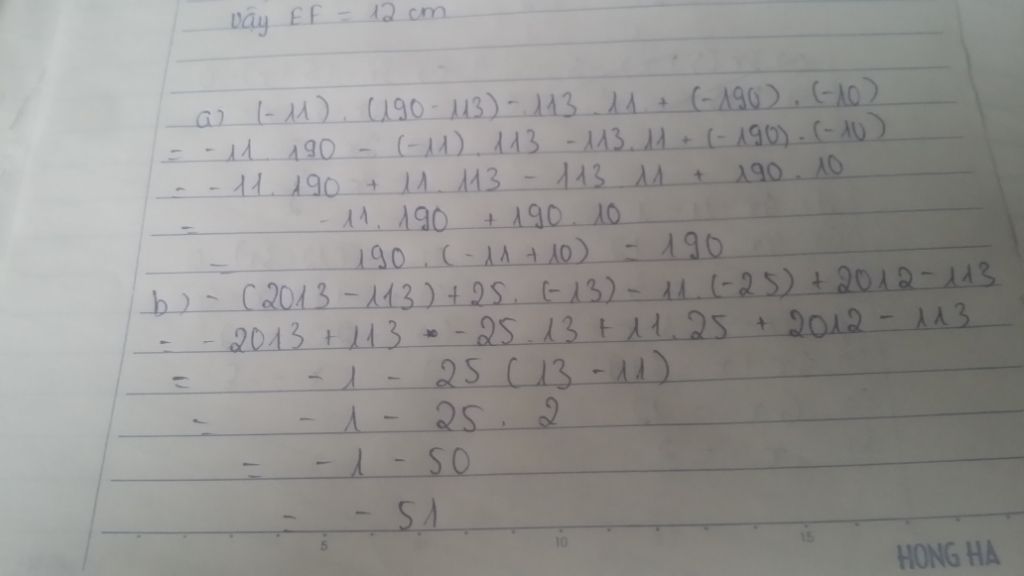 vậy EF = 12 cm
a) (-11) . (190 - 113) - 113 . 11 + (-190) . (-10)
= -11 . 190 - (-11) . 113 - 113 . 11 + (-190) . (-10)
= -11 . 190 + 11 . 113 - 113 . 11 + 190 . 10
= -11 . 190 + 190 . 10
= 190 . (-11 + 10) = 190
b) - (2013 - 113) + 25 . (-13) - 11 . (-25) + 2012 - 113
= - 2013 + 113 - 25 . 13 + 11 . 25 + 2012 - 113
= - 1 - 25 (13 - 11)
= - 1 - 25 . 2
= - 1 - 50
= - 51
5 10 15
HONG HA